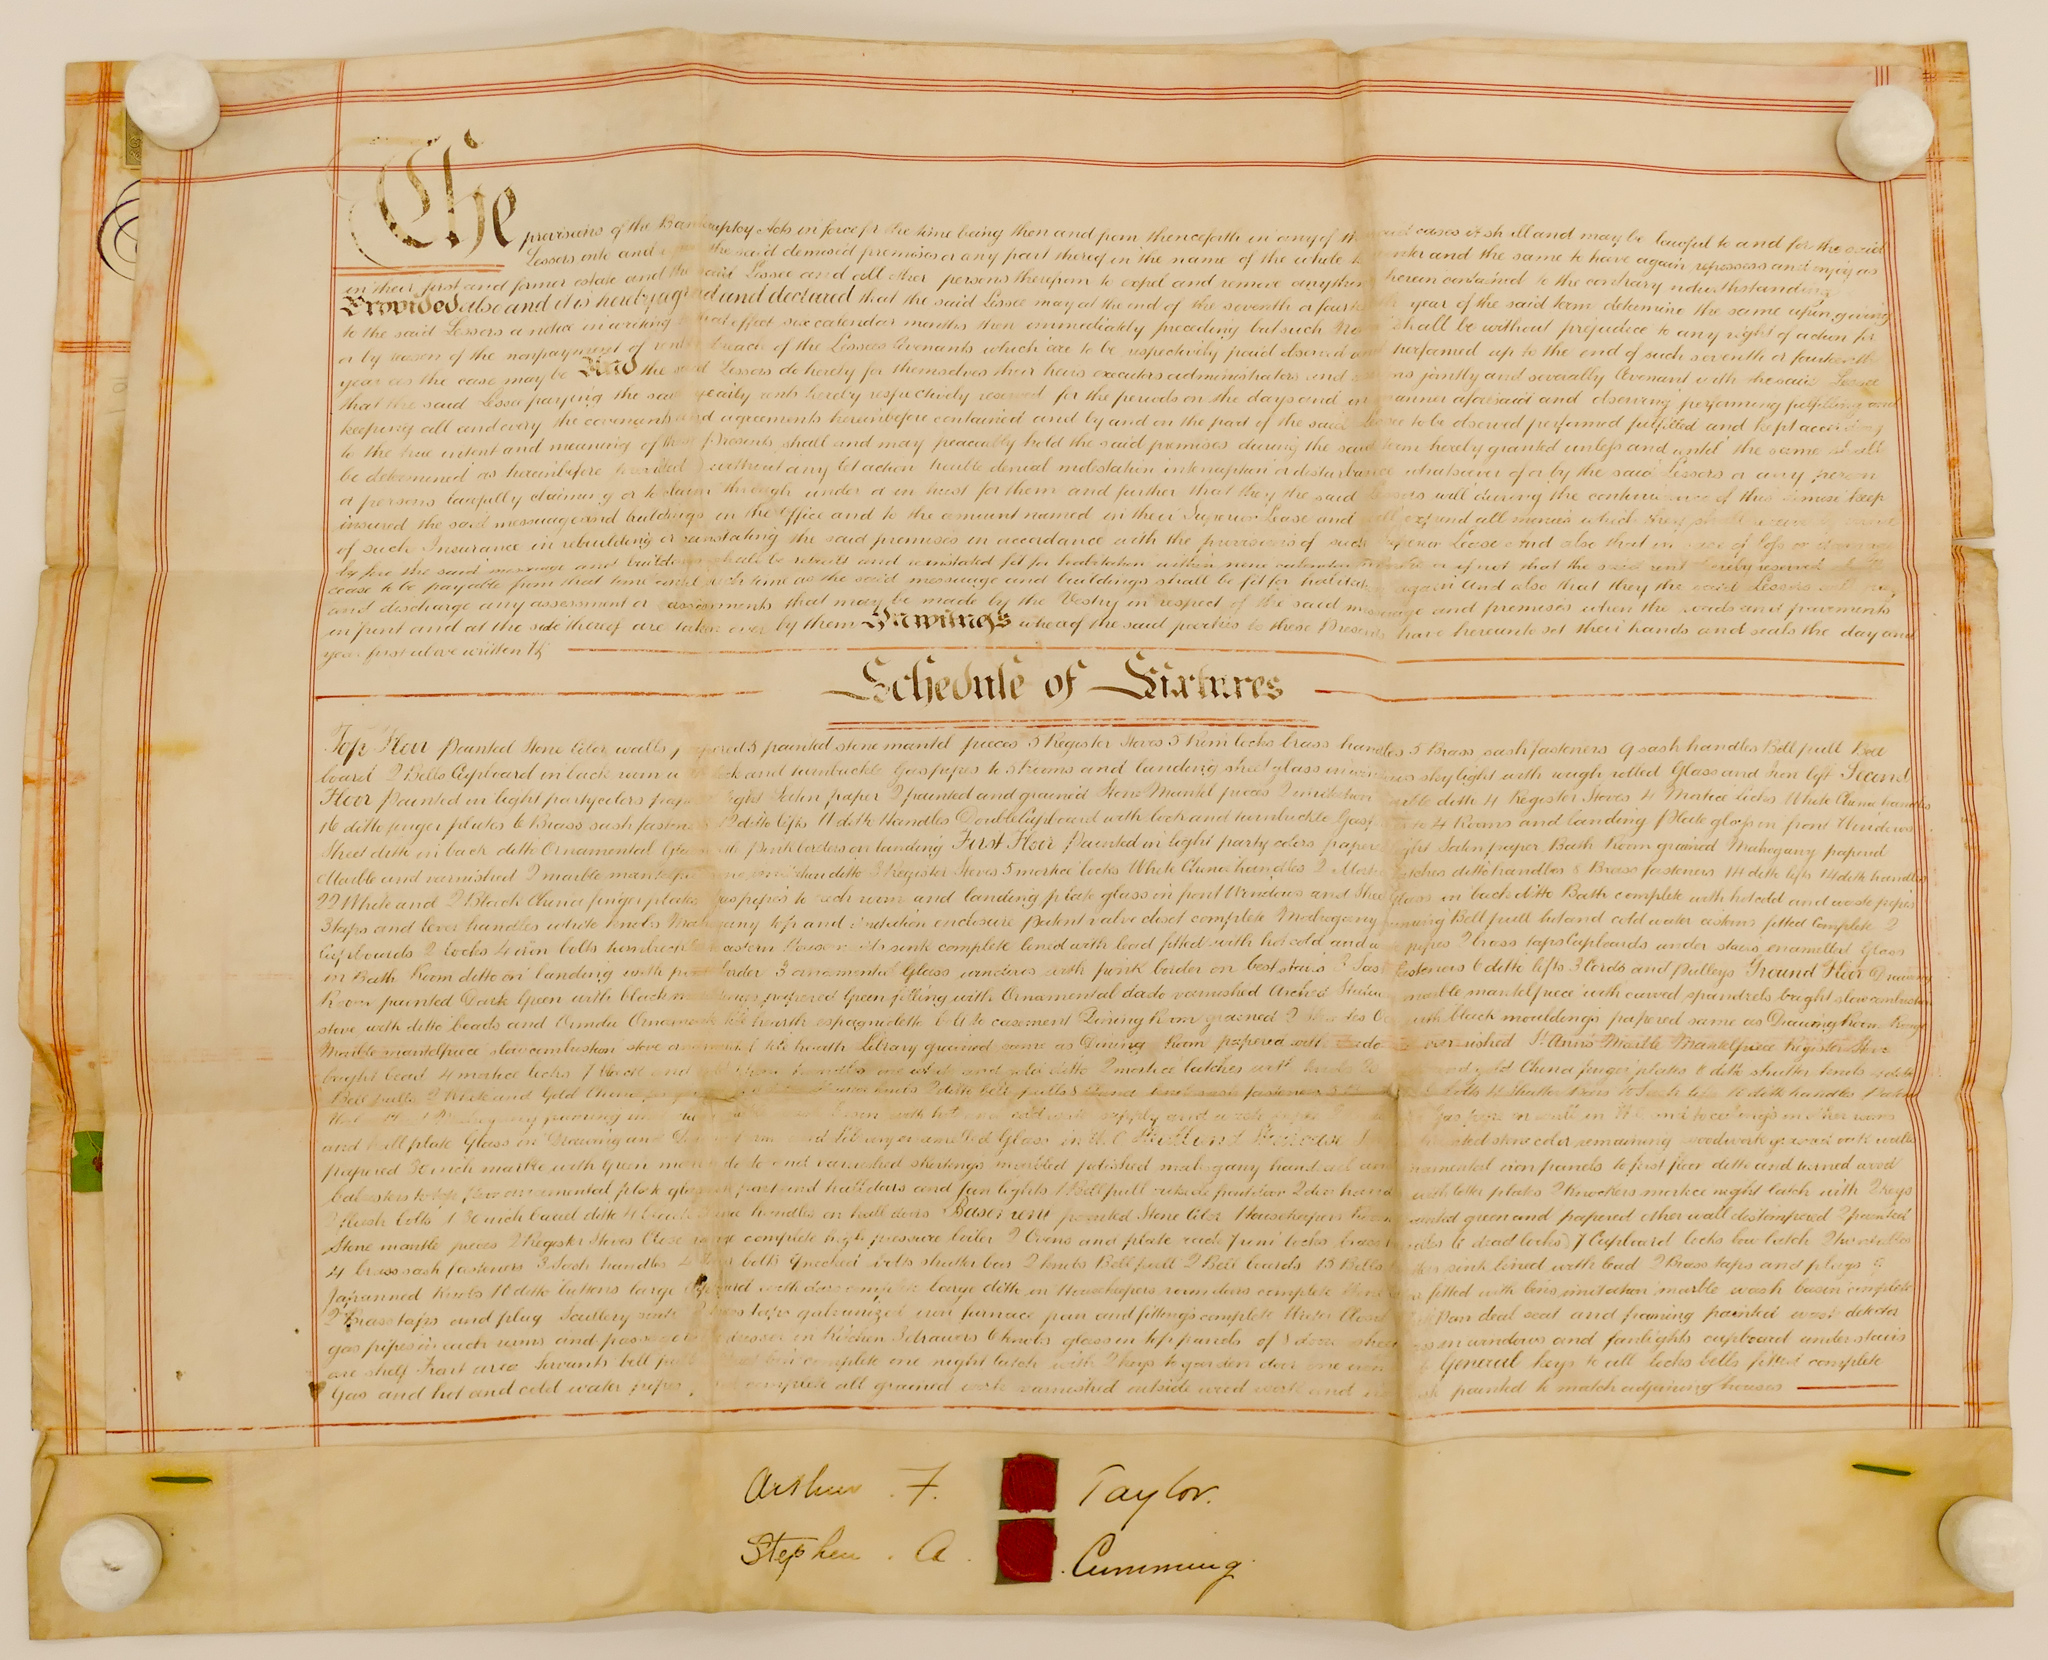 The provisions of the Bankruptcy Acts in force for the time being then and from thenceforth in any of the said cases it shall and may be lawful to and for the said
Lessors into and upon the said demised premises or any part thereof in the name of the whole to reenter and the same to have again repossess and enjoy as
in their first and former estate and the said Lessee and all other persons therefrom to expel and remove anything herein contained to the contrary notwithstanding
Provided also and it is hereby agreed and declared that the said Lessee may at the end of the seventh or fourteenth year of the said term determine the same upon giving
to the said Lessors a notice in writing to that effect six calendar months then immediately preceding but such Notice shall be without prejudice to any right of action for
or by reason of the nonpayment of rent or breach of the Lessees Covenants which are to be respectively paid observed and performed up to the end of such seventh or fourteenth
year as the case may be And the said Lessors do hereby for themselves their heirs executors administrators and assigns jointly and severally Covenant with the said Lessee
that the said Lessee paying the said yearly rents hereby respectively reserved for the periods on the days and in manner aforesaid and observing performing fulfilling and
keeping all and every the covenants and agreements hereinbefore contained and by and on the part of the said Lessee to be observed performed fulfilled and kept according
to the true intent and meaning of these Presents shall and may peaceably hold the said premises during the said term hereby granted unless and until the same shall
be determined as hereinbefore provided without any let action trouble denial molestation interruption or disturbance whatsoever of or by the said Lessors or any person
or persons lawfully claiming or to claim through under or in trust for them and further that they the said Lessors will during the continuance of this demise keep
insured the said messuage and buildings in the Office and to the amount named in their Superior Lease and will expend all monies which they shall receive by
of such Insurance in rebuilding or reinstating the said premises in accordance with the provisions of such Superior Lease And also that in case of loss or damage
by fire the said messuage and buildings shall be rebuilt and reinstated fit for habitation within nine calendar months or if not that the said rent hereby reserved shall
cease to be payable from that time until such time as the said messuage and buildings shall be fit for habitation again And also that they the said Lessors will pay
and discharge any assessment or assessments that may be made by the Vestry in respect of the said messuage and premises when the roads and pavements
in front and at the side thereof are taken over by them In witness whereof the said parties to these Presents have hereunto set their hands and seals the day and
year first above written
Schedule of Fixtures
Top Floor Painted Stone Color walls papered 5 painted stone mantel pieces 5 Register Stoves 5 Rim locks brass handles 5 Brass sash fasteners 9 sash handles Bell pull Bell
board 2 Bells Cupboard in back room with lock and turnbuckle Gas pipes to 5 Rooms and landing sheet glass in windows skylight with rough rolled Glass and Iron lift Second
Floor Painted in light party colors papered light Satin paper 2 painted and grained Stone Mantel pieces 2 imitation marble ditto 4 Register Stoves 4 Mortice Locks White China handles
16 ditto finger plates 6 Brass sash fasteners 12 ditto lifts 11 ditto Handles Double Cupboard with lock and turnbuckle Gas pipes to 4 Rooms and landing Plate glass in front Windows
Sheet ditto in back ditto Ornamental Glass with Pink borders on landing First Floor Painted in light party colors papered light Satin paper Bath Room grained Mahogany papered
Marble and varnished 2 marble mantelpieces imitation ditto 3 Register Stoves 5 mortice locks White China handles 2 Mortice latches ditto handles 8 Brass fasteners 14 ditto lifts 14 ditto handles
22 White and 2 Black China finger plates Gas pipes to each room and landing plate glass in front Windows and Sheet Glass in back ditto Bath complete with hot cold and waste pipes
3 taps and lever handles white knobs Mahogany top and imitation enclosure Patent valve closet complete Mahogany framing Bell pull hot and cold water cistern fitted Complete 2
Cupboards 2 Locks 4 iron bolts sink complete lined with lead fitted with hot cold and waste pipes 2 brass taps Cupboards under stairs enamelled Glass
in Bath Room ditto on landing with pink border 3 ornamental Glass windows with pink border on best stairs 3 Sash fasteners 6 ditto lifts 3 Cords and Pulleys Ground Floor Drawing
Room painted Dark Green with black mouldings papered Green filling with Ornamental dado varnished Arched marble mantelpiece with carved spandrels bright slow combustion
stove with ditto beads and Ormolu Ornaments tile hearth espagniolette bolt to casement Dining Room grained with black mouldings papered same as Drawing Room Rouge
Marble mantelpiece slow combustion stove tile hearth Library grained same as Dining Room papered with dado varnished St Anns Marble Mantelpiece Register Stove
bright bead 4 mortice locks 2 mortice latches with knobs China finger plates 6 ditto shutter knobs
Bell pulls 2 White and Gold China 2 ditto bell pulls sash fasteners bolts 4 Shutter Bars ditto handles
Mahogany framing with hot and cold water supply and waste pipe
and hall plate Glass in Drawing and Library enamelled Glass in W.C. Hall and Staircase painted stone color remaining woodwork grained oak walls
papered 30 inch marble with Green dado and varnished skirtings marbled polished mahogany hand rail and ornamental iron panels to first floor ditto and turned wood
balusters to top floor ornamental plate glass in front and hall doors and fan lights 1 Bell pull outside front door 2 door with letter plates 2 Knockers mortice night latch with 2 keys
2 flush bolts 1 30 inch barrel ditto handles on hall doors Basement painted Stone Color Housekeepers Room painted green and papered other wall distempered 2 painted
Stone mantle pieces 2 Register Stoves Close range complete high pressure boiler 2 Ovens and plate rack 7 rim locks brass handles 6 dead locks 7 Cupboard locks bow latch 2 thumb
4 brass sash fasteners 3 Sash handles bolts 9 necked bolts shutter bar 2 knobs Bell pull 2 Bell boards 15 Bells sink lined with lead 2 Brass taps and plugs
Japanned Knobs 11 ditto buttons large Cupboard with doors complete large ditto in Housekeepers room doors complete fitted with bins imitation marble wash basin complete
2 Brass taps and plug Scullery sink galvanized iron furnace pan and fittings complete Water Closet Pan deal seat and framing painted waste detector
gas pipes in each room and passage dresser in Kitchen 3 drawers 6 knobs glass in top panels of 1 door sheet glass in windows and fanlights cupboard under stairs
one shelf Front area Servants bell pull complete one night latch with 2 keys to garden door one iron General keys to all locks bells fitted complete
Gas and hot and cold water pipes complete all grained work varnished outside wood work and painted to match adjoining houses
Arthur . F. Taylor.
Stephen . A . Cumming.